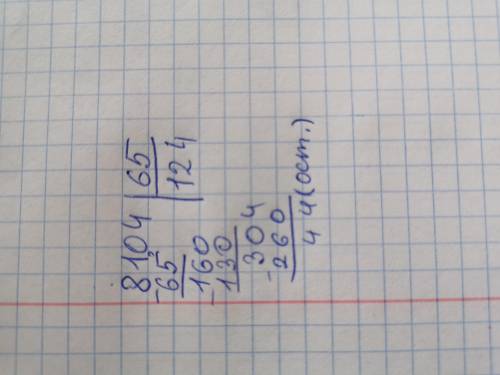 8104 | 65
-65 | 124
-160
130
-304
-260
44 (ост.)